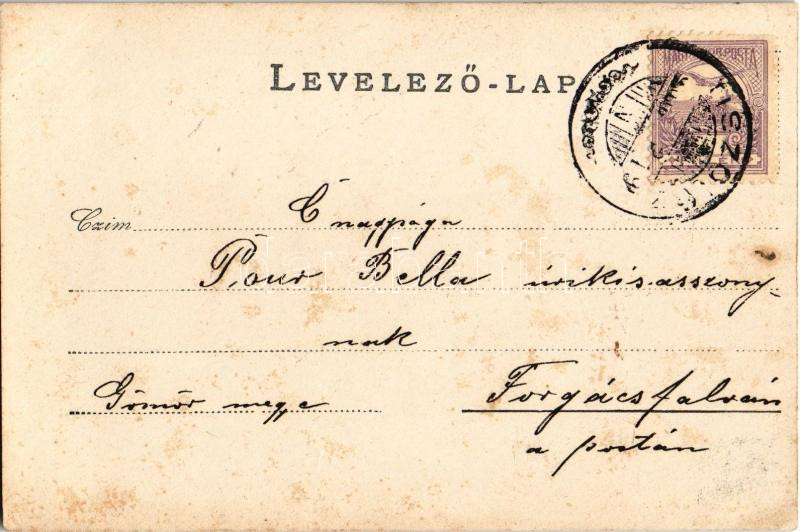 LEVELEZŐ-LAP
MAGYAR KIR. POSTA
TISZOLCZ
Czim
Ő nagysága
Pour Bella úrikisasszony-
nak
Gömör megye
Forgácsfalván
a postán
darabanth